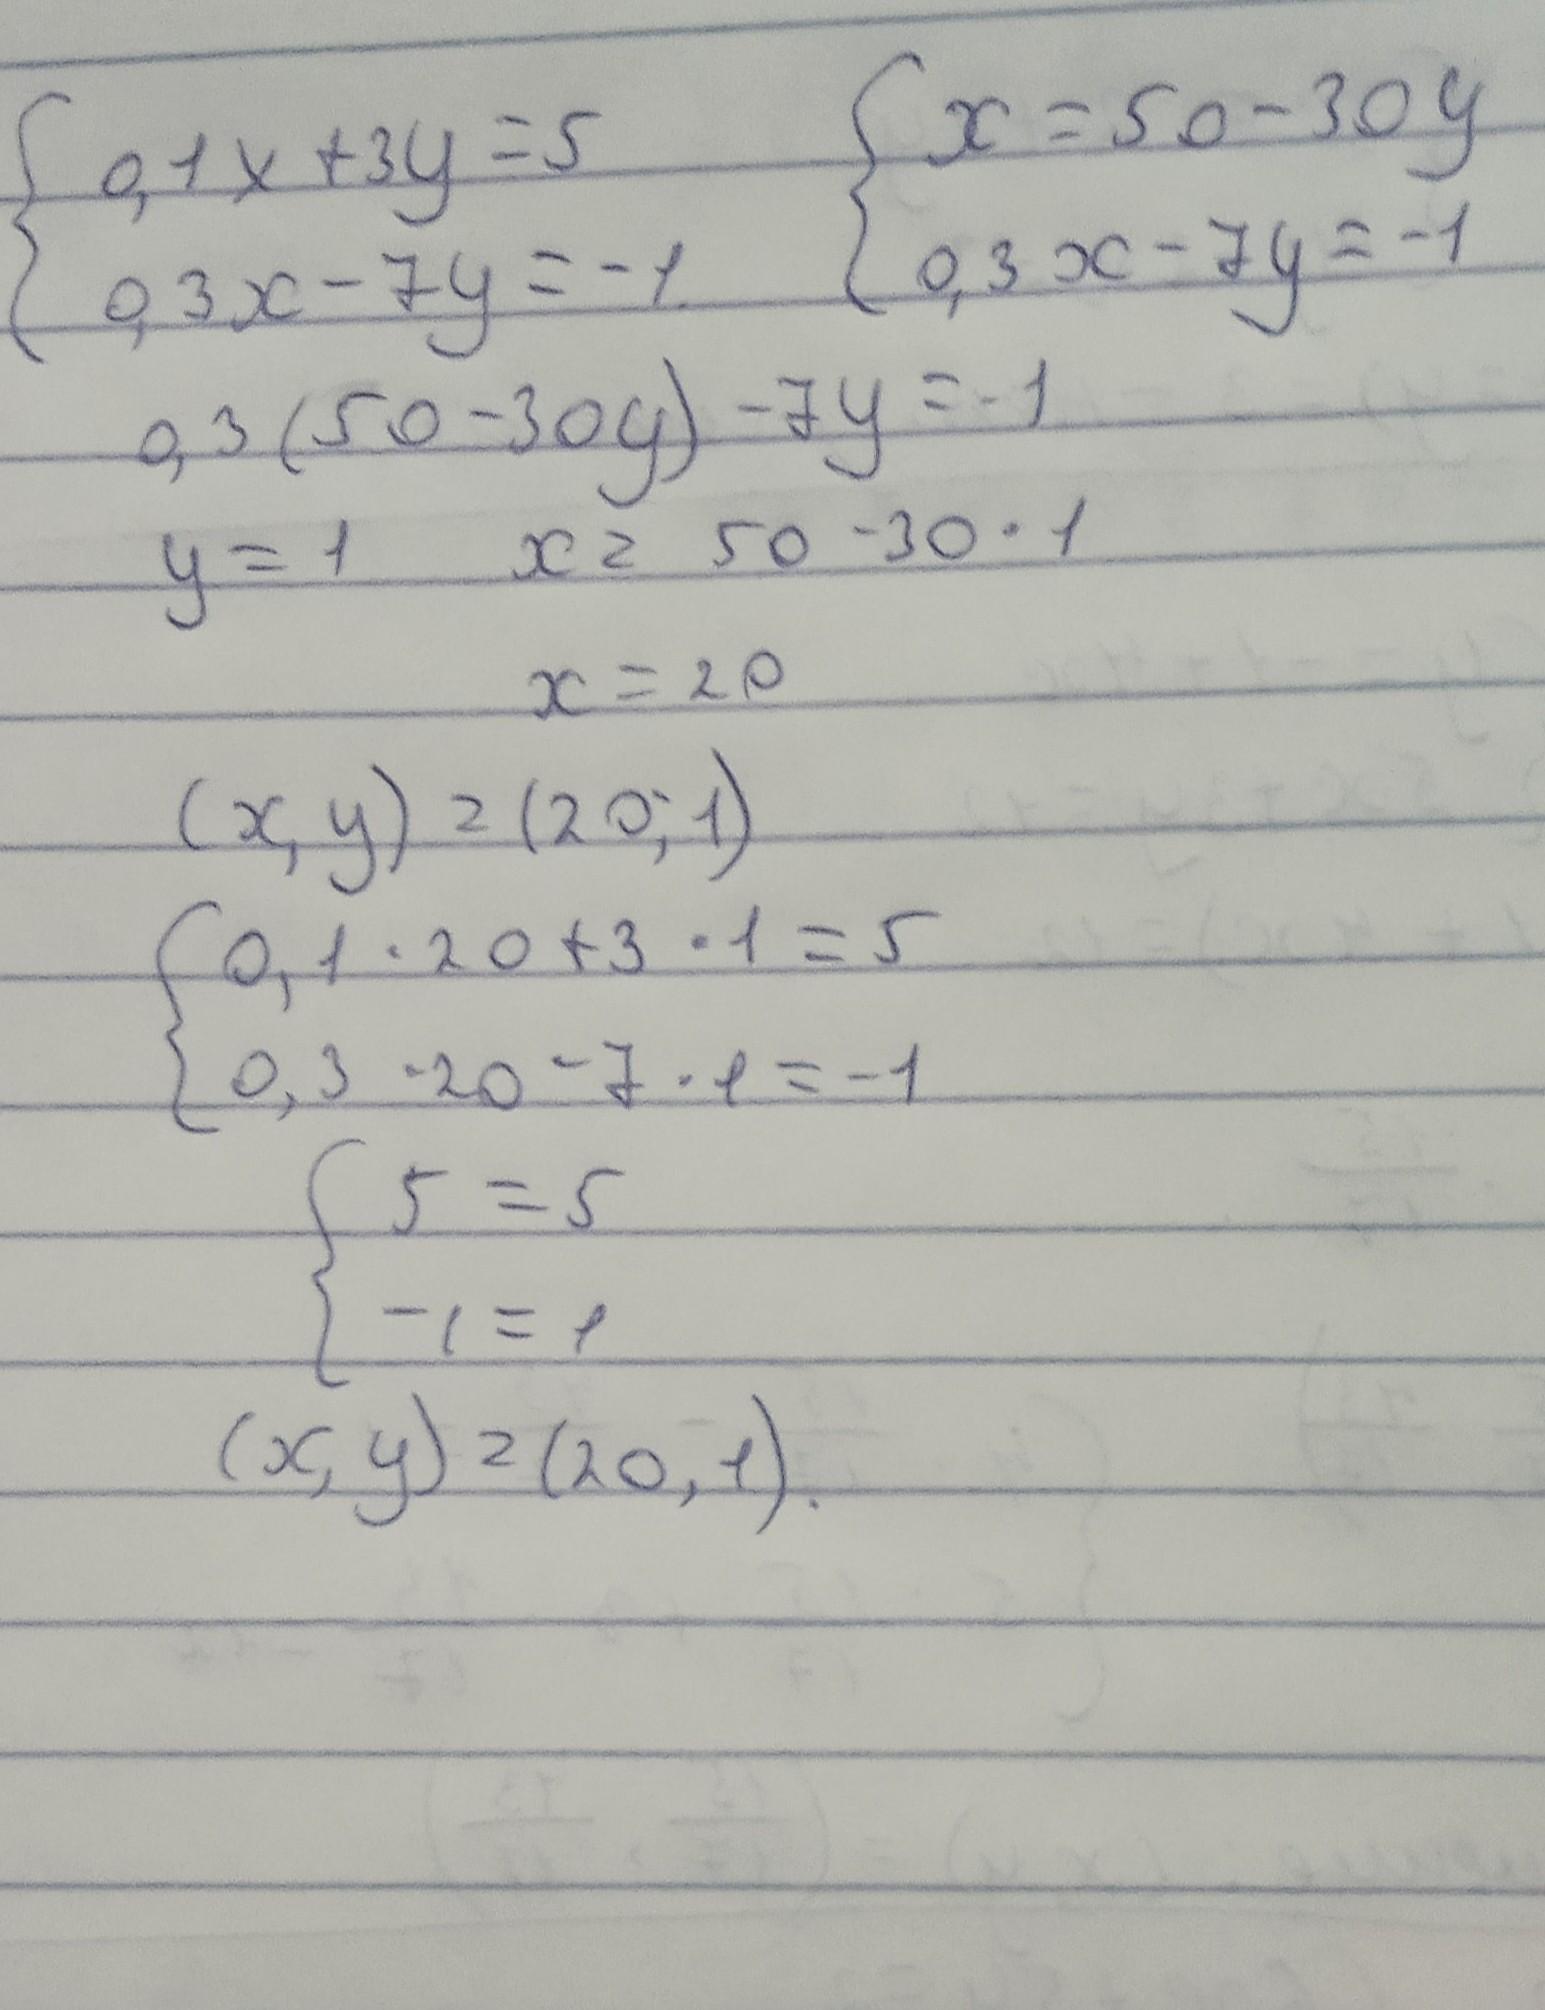 { 0,1x + 3y = 5
0,3x - 7y = -1.
{ x = 50 - 30y
0,3x - 7y = -1
0,3(50 - 30y) - 7y = -1
y = 1 x = 50 - 30 · 1
x = 20
(x, y) = (20; 1)
{ 0,1 · 20 + 3 · 1 = 5
0,3 · 20 - 7 · 1 = -1
{ 5 = 5
-1 = 1
(x, y) = (20, 1).